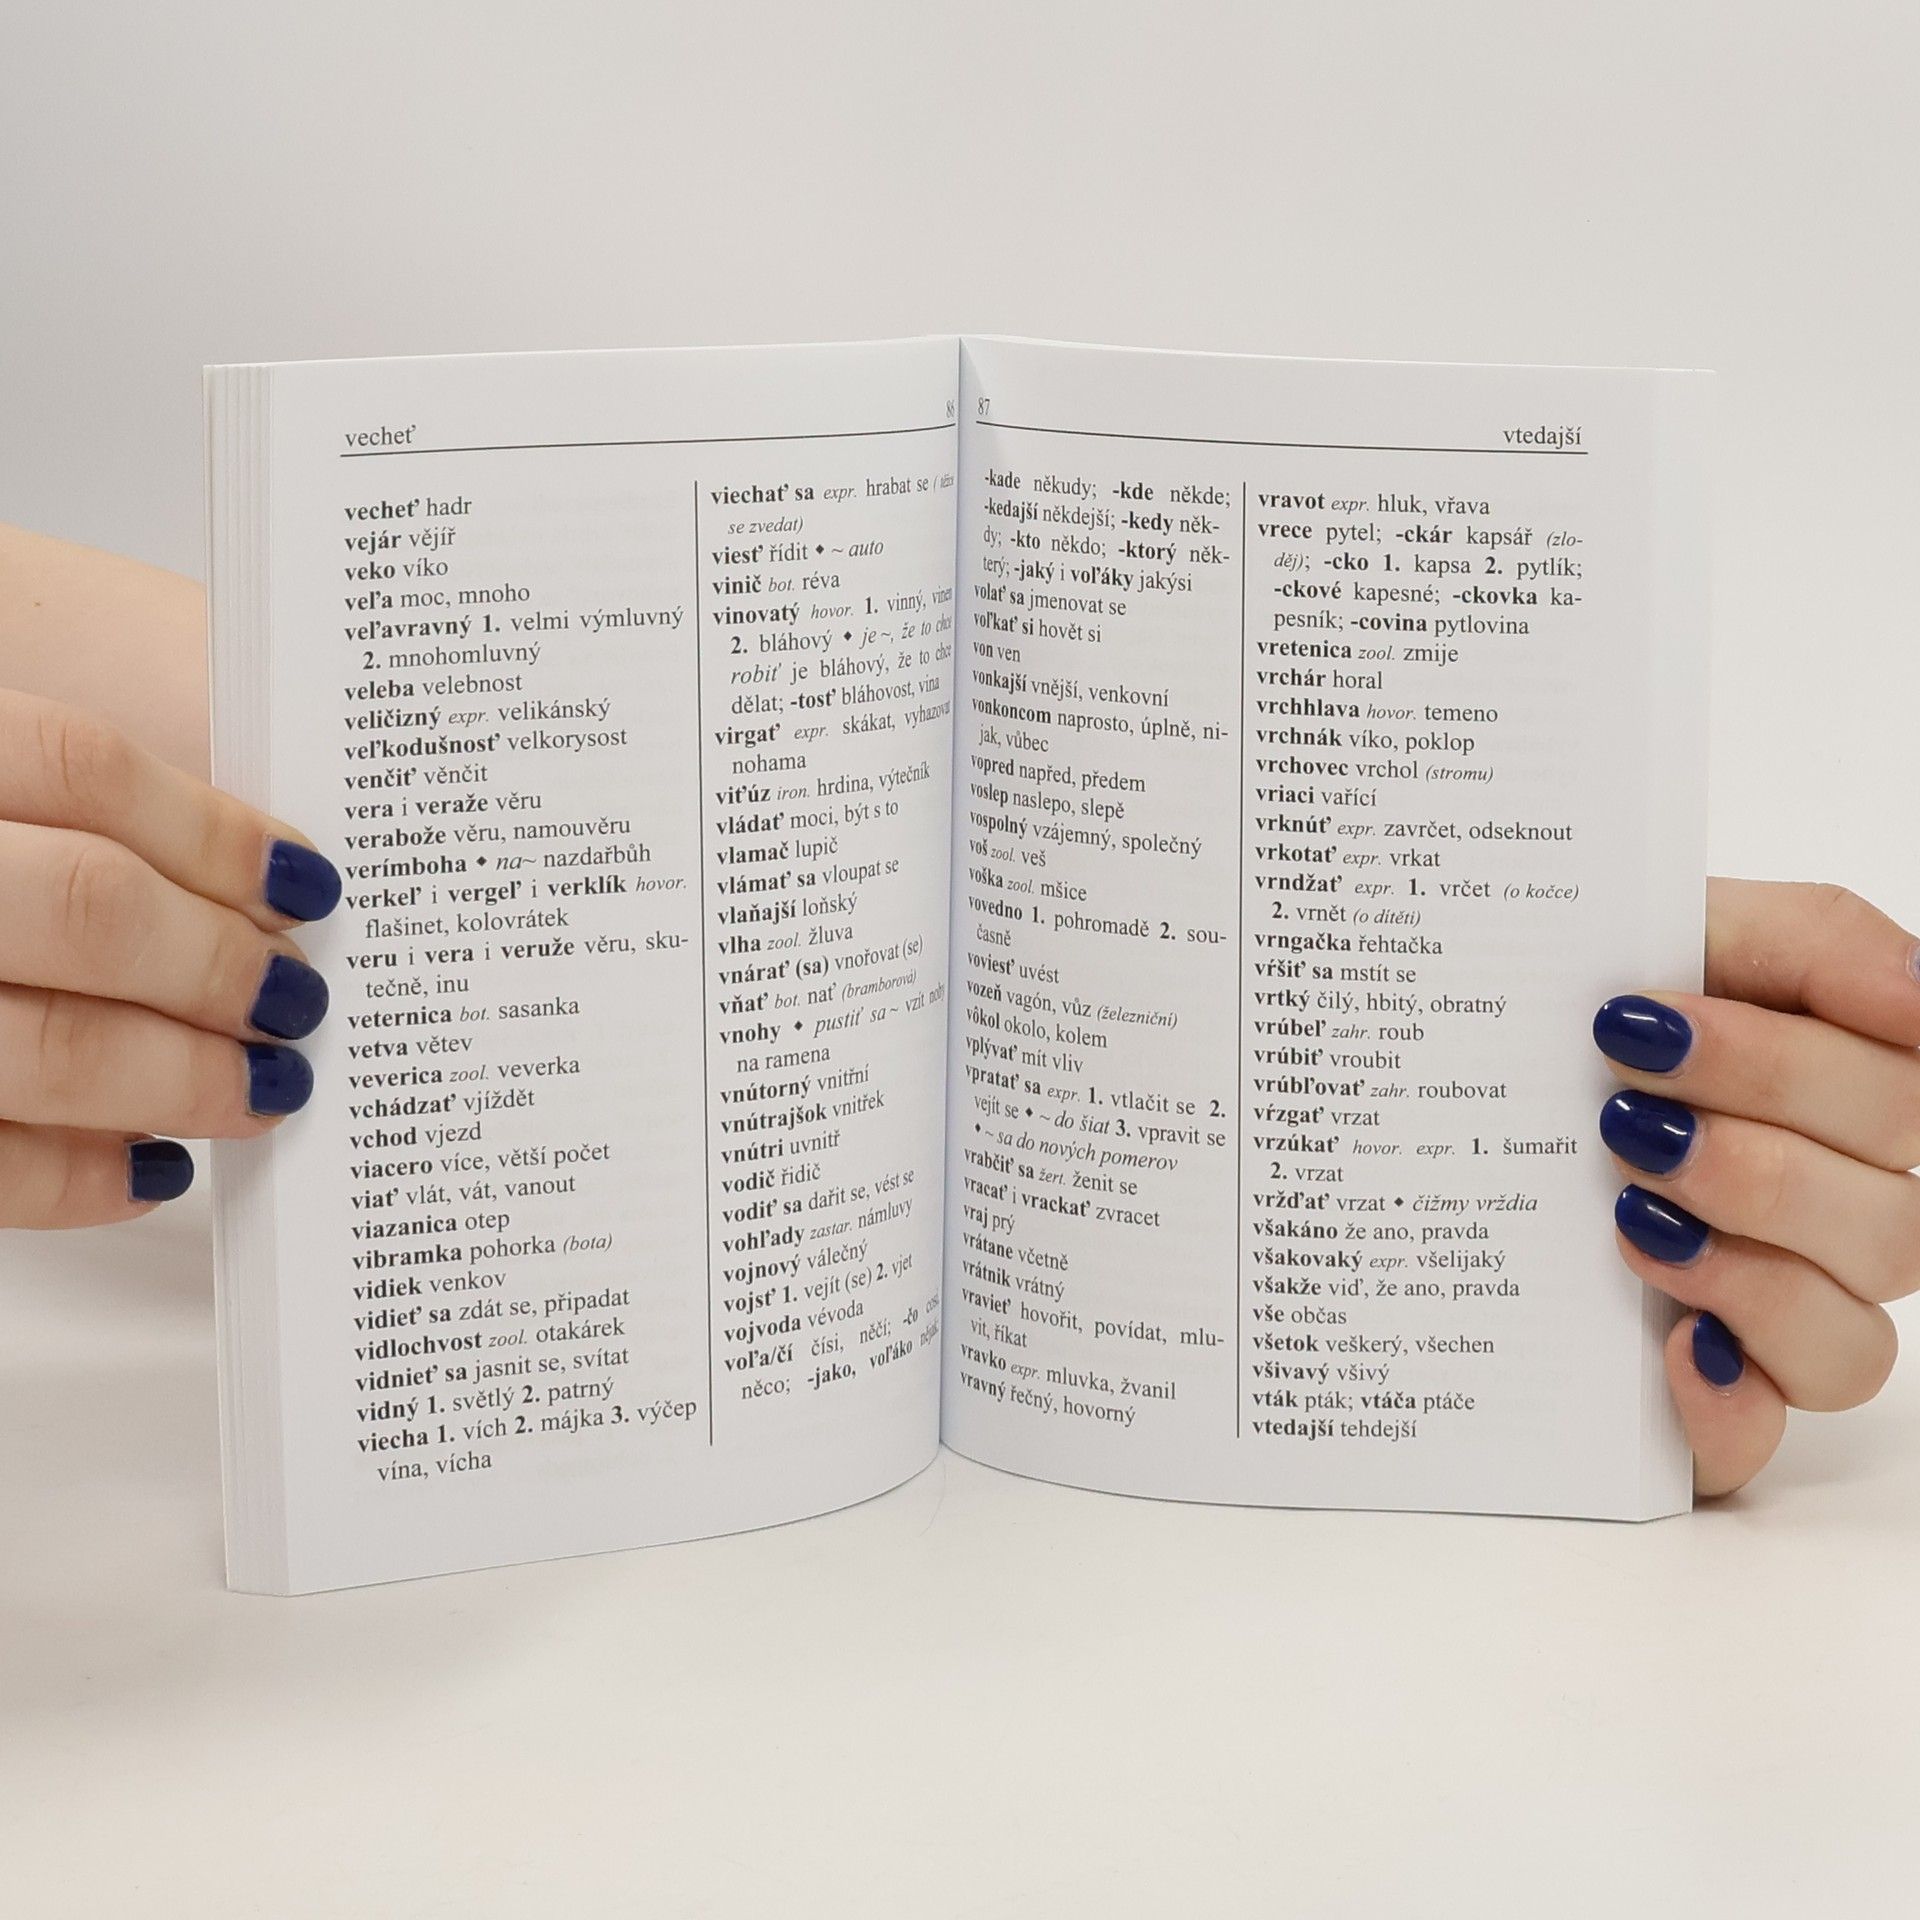 vecheť
86
vecheť hadr
vejár vějíř
veko víko
veľa moc, mnoho
veľavravný 1. velmi výmluvný
2. mnohomluvný
veleba velebnost
veličizný expr. velikánský
veľkodušnosť velkorysost
venčiť věnčit
vera i veraže věru
verabože věru, namouvěru
verímboha ◆ na~ nazdařbůh
verkeľ i vergeľ i verklík hovor.
flašinet, kolovrátek
veru i vera i veruže věru, sku-
tečně, inu
veternica bot. sasanka
vetva větev
veverica zool. veverka
vchádzať vjíždět
vchod vjezd
viacero více, větší počet
viať vlát, vát, vanout
viazanica otep
vibramka pohorka (bota)
vidiek venkov
vidieť sa zdát se, připadat
vidlochvost zool. otakárek
vidnieť sa jasnit se, svítat
vidný 1. světlý 2. patrný
viecha 1. vích 2. májka 3. výčep
vína, vícha
viechať sa expr. hrabat se (těžce
se zvedat)
viesť řídit ◆ ~ auto
vinič bot. réva
vinovatý hovor. 1. vinný, vinen
2. bláhový ◆ je ~, že to chce
robiť je bláhový, že to chce
dělat; -tosť bláhovost, vina
virgať expr. skákat, vyhazovat
nohama
viťúz iron. hrdina, výtečník
vládať moci, být s to
vlamač lupič
vlámať sa vloupat se
vlaňajší loňský
vlha zool. žluva
vnárať (sa) vnořovat (se)
vňať bot. nať (bramborová)
vnohy ◆ pustiť sa ~ vzít nohy
na ramena
vnútorný vnitřní
vnútrajšok vnitřek
vnútri uvnitř
vodič řidič
vodiť sa dařit se, vést se
vohľady zastar. námluvy
vojnový válečný
vojsť 1. vejít (se) 2. vjet
vojvoda vévoda
voľa/čí čísi, něčí; -čo cosi,
něco; -jako, voľáko nějak;
87
vtedajší
-kade někudy; -kde někde;
-kedajší někdejší; -kedy něk-
dy; -kto někdo; -ktorý něk-
terý; -jaký i voľáky jakýsi
volať sa jmenovat se
voľkať si hovět si
von ven
vonkajší vnější, venkovní
vonkoncom naprosto, úplně, ni-
jak, vůbec
vopred napřed, předem
voslep naslepo, slepě
vospolný vzájemný, společný
voš zool. veš
voška zool. mšice
vovedno 1. pohromadě 2. sou-
časně
voviesť uvést
vozeň vagón, vůz (železniční)
vôkol okolo, kolem
vplývať mít vliv
vpratať sa expr. 1. vtlačit se 2.
vejít se ◆ ~ do šiat 3. vpravit se
◆ ~ sa do nových pomerov
vrabčiť sa žert. ženit se
vracať i vrackať zvracet
vraj prý
vrátane včetně
vrátnik vrátný
vravieť hovořit, povídat, mlu-
vit, říkat
vravko expr. mluvka, žvanil
vravný řečný, hovorný
vravot expr. hluk, vřava
vrece pytel; -ckár kapsář (zlo-
děj); -cko 1. kapsa 2. pytlík;
-ckové kapesné; -ckovka ka-
pesník; -covina pytlovina
vretenica zool. zmije
vrchár horal
vrchhlava hovor. temeno
vrchnák víko, poklop
vrchovec vrchol (stromu)
vriaci vařící
vrknúť expr. zavrčet, odseknout
vrkotať expr. vrkat
vrndžať expr. 1. vrčet (o kočce)
2. vrnět (o dítěti)
vrngačka řehtačka
vŕšiť sa mstít se
vrtký čilý, hbitý, obratný
vrúbeľ zahr. roub
vrúbiť vroubit
vrúbľovať zahr. roubovat
vŕzgať vrzat
vrzúkať hovor. expr. 1. šumařit
2. vrzat
vržďať vrzat ◆ čižmy vrždia
všakáno že ano, pravda
všakovaký expr. všelijaký
všakže viď, že ano, pravda
vše občas
všetok veškerý, všechen
všivavý všivý
vták pták; vtáča ptáče
vtedajší tehdejší